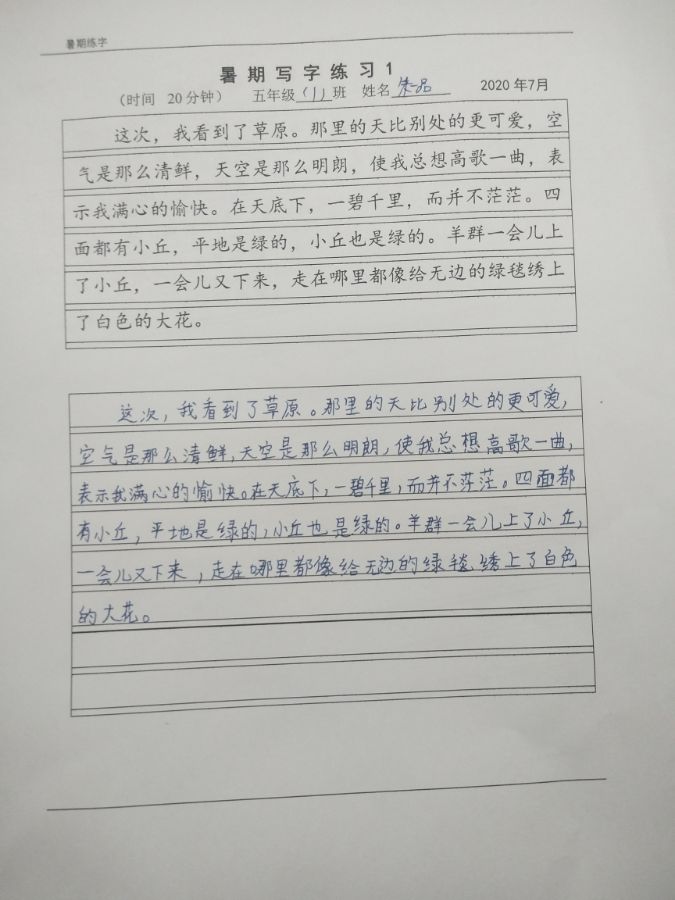 暑期练字
暑期写字练习1
（时间 20分钟） 五年级（1）班 姓名 朱一品 2020年7月
这次，我看到了草原。那里的天比别处的更可爱，空
气是那么清鲜，天空是那么明朗，使我总想高歌一曲，表
示我满心的愉快。在天底下，一碧千里，而并不茫茫。四
面都有小丘，平地是绿的，小丘也是绿的。羊群一会儿上
了小丘，一会儿又下来，走在哪里都像给无边的绿毯绣上
了白色的大花。
这次，我看到了草原。那里的天比别处的更可爱，
空气是那么清鲜，天空是那么明朗，使我总想高歌一曲，
表示我满心的愉快。在天底下，一碧千里，而并不茫茫。四面都
有小丘，平地是绿的，小丘也是绿的。羊群一会儿上了小丘，
一会儿又下来，走在哪里都像给无边的绿毯绣上了白色
的大花。